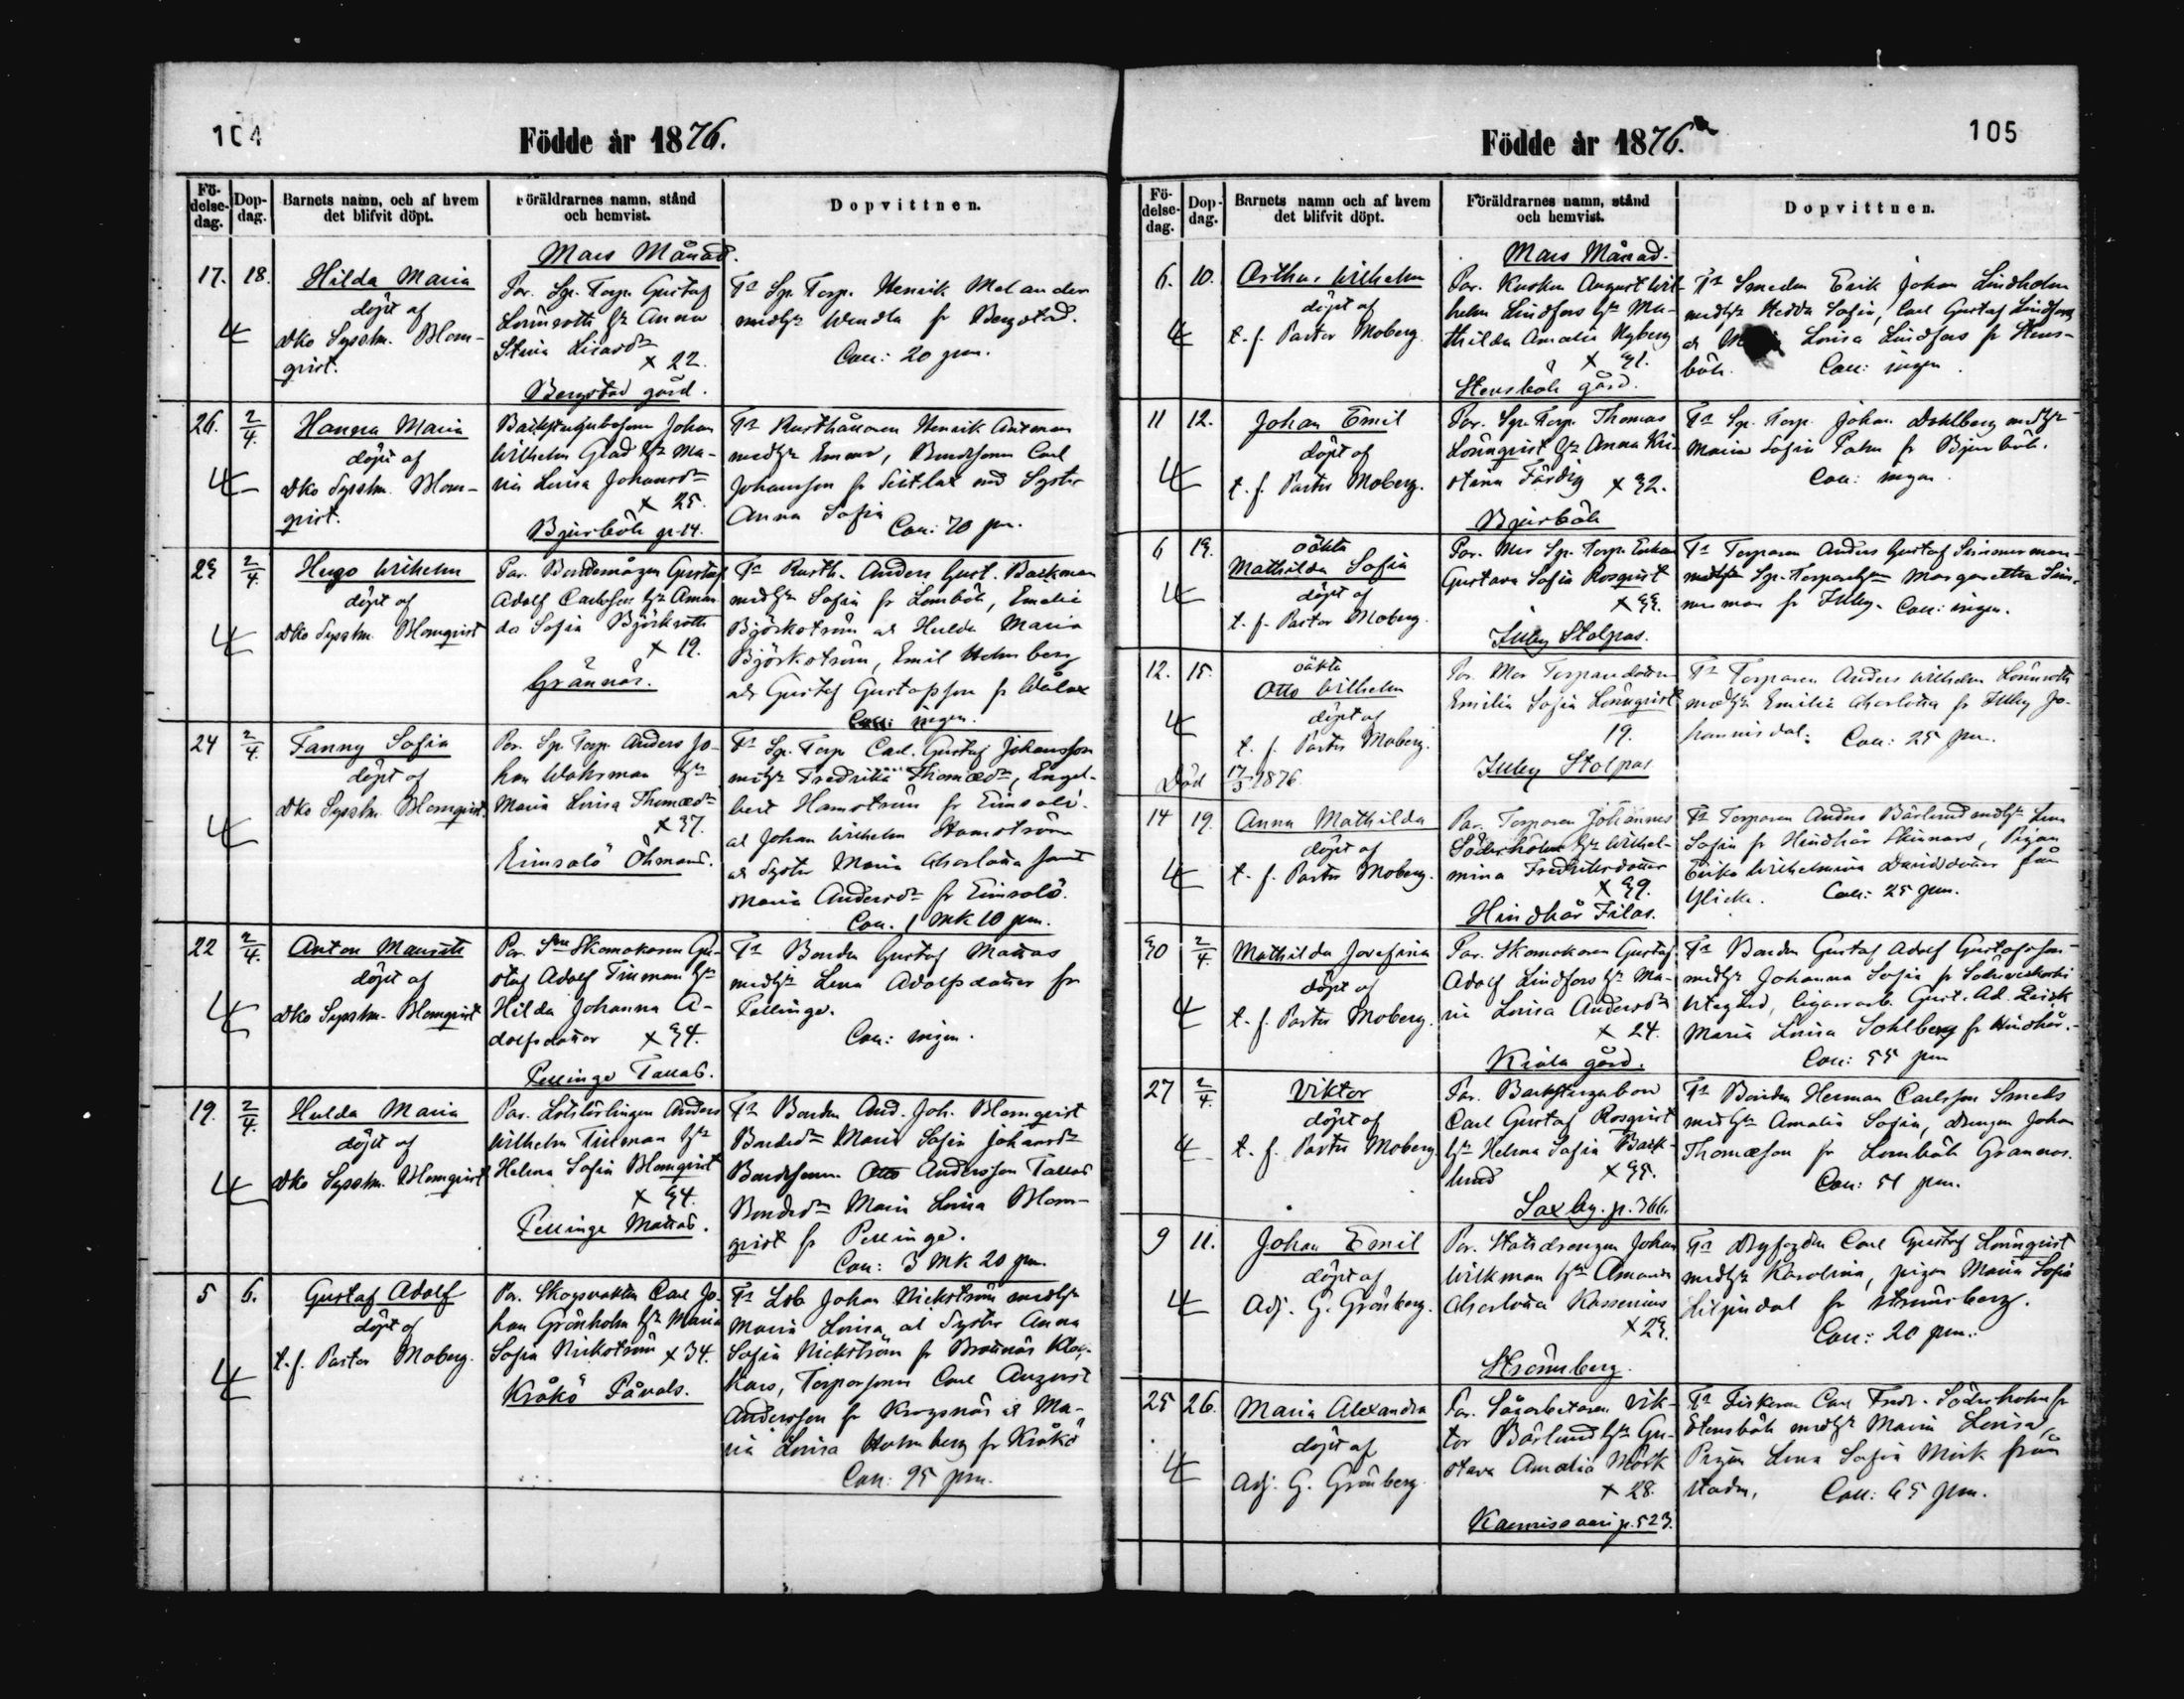 104
Födde år 1876.
Födelsedag.
Dopdag.
Barnets namn, och af hvem det blifvit döpt.
Föräldrarnes namn, stånd och hemvist.
Dopvittnen.
Mars Månad.
17. 18.
Hilda Maria
döpt af
dko Sysslm. Blom-
qvist.
Par. Sp. Torp. Gustaf
Lönnroth Anna
Stina
x 22.
Bergstad gård.
Sp. Torp. Henrik Melander
Wendla fr Bergstad.
Coll: 20 pm.
26. 2/4.
Hanna Maria
döpt af
dko Sysslm. Blom-
qvist.
Johan
Wilhelm Glad Ma-
ria Lovisa Johansdr
x 25.
Bjurböle p. 14.
Rusthållaren Henrik Antman
Emma, Bondesonen Carl
Johansson fr Seitlax med Syster
Anna Sofia
Coll: 70 pm.
29 2/4.
Hugo Wilhelm
döpt af
dko Sysslm. Blomqvist
Par. Bondemågen Gustaf
Adolf Carlsson Aman-
da Sofia Björkroth
x 19.
Grännäs.
Rusth. Anders Gust. Backman
Sofia fr Lomböle, Emelie
Björkström Hulda Maria
Björkström, Emil Holmberg
Gustaf Gustafsson fr Wålax
Coll: ingen.
24 2/4.
Fanny Sofia
döpt af
dko Sysslm. Blomqvist.
Par. Sp. Torp. Anders Jo-
han Wahrman
Maria Lovisa Thomasdr
x 37.
Emsalö Öhmans.
Sp. Torp. Carl Gustaf Johansson
Fredrika Thomasdr, Engel-
bert Hamström fr Emsalö
Johan Wilhelm Hamström
Syster Maria Charlotta samt
Maria Andersdr fr Emsalö.
Coll. 1 mk 10 pm.
22 2/4.
Anton Maurits
döpt af
dko Sysslm. Blomqvist
Par. Skomakaren Gu-
staf Adolf Tinman
Hilda Johanna A-
dolfsdotter x 34.
Pellinge Tallas.
Bonden Gustaf Mattas
Lena Adolfsdotter fr
Pellinge.
Coll: ingen.
19. 2/4.
Hulda Maria
döpt af
dko Sysslm. Blomqvist
Par. Lotslärlingen Anders
Wilhelm Tinman
Helena Sofia Blomqvist
x 34.
Pellinge Mattas.
Bonden And. Joh. Blomqvist
Bondedr Maria Sofia Johansdr
Bondesonen Otto Andersson Tallas
Bondedr Maria Lovisa Blom-
qvist fr Pellinge.
Coll: 3 mk 20 pm.
5 6.
Gustaf Adolf
döpt af
t. f. Pastor Moberg.
Par. Skogsvakten Carl Jo-
han Grönholm Maria
Sofia Nickström x 34.
Kråkö Påvals.
Johan Nickström
Maria Lovisa Syster Anna
Sofia Nickström fr
Torparsonen Carl August
Andersson fr Krogsnäs Ma-
ria Lovisa Holmberg fr Kråkö
Coll: 95 pm.
105
Födde år 1876.
Födelsedag.
Dopdag.
Barnets namn och af hvem det blifvit döpt.
Föräldrarnes namn, stånd och hemvist.
Dopvittnen.
Mars Månad.
6. 10.
Arthur Wilhelm
döpt af
t. f. Pastor Moberg.
Par. Kusken August Wil-
helm Lindfors Ma-
thilda Amalia Nyberg
x 31.
Stensböle gård.
Smeden Erik Johan Lindholm
Hedda Sofia, Carl Gustaf Lindfors
Lovisa Lindfors fr Stens-
böle. Coll: ingen.
11 12.
Johan Emil
döpt af
t. f. Pastor Moberg.
Par. Sp. Torp. Thomas
Lönnqvist Anna Kri-
stina Färdig x 32.
Bjurböle
Sp. Torp. Johan Dahlberg
Maria Sofia Palm fr Bjurböle.
Coll: ingen.
6 19.
oäkta
Mathilda Sofia
döpt af
t. f. Pastor Moberg.
Par. Mor Sp. Torp. Enkan
Gustava Sofia Rosqvist
x 33.
Illby Stolpas.
Torparen Anders Gustaf Simmerman
Margaretha Sim-
merman fr Illby. Coll: ingen.
12. 15.
oäkta
Otto Wilhelm
döpt af
t. f. Pastor Moberg.
Död 17/3 1876
Par. Mor Torparedottern
Emilia Sofia Lönnqvist
19.
Illby Stolpas
Torparen Anders Wilhelm Lönnroth
Emilia Charlotta fr Illby Jo-
hannisdal. Coll: 25 pm.
14 19.
Anna Mathilda
döpt af
t. f. Pastor Moberg.
Par. Torparen Johannes
Söderholm Wilhel-
mina Fredriksdotter
x 39.
Hindhår Filas.
Torparen Anders Bärlund Lena
Sofia fr Hindhår Skinnars, Pigan
Erika Wilhelmina Davidsdotter från
Coll: 25 pm.
30 2/4.
Mathilda Josefina
döpt af
t. f. Pastor Moberg.
Par. Skomakaren Gustaf
Adolf Lindfors Ma-
ria Lovisa Andersdr
x 24.
Kiala gård.
Bonden Gustaf Adolf Gustafsson
Johanna Sofia fr
Gust. Ad.
Maria Lovisa Sohlberg fr Hindhår.
Coll: 55 pm
27 2/4.
Viktor
döpt af
t. f. Pastor Moberg
Par. Backstugubon
Carl Gustaf Rosqvist
Helena Sofia Back-
lund x 35.
Saxby. p. 366.
Bonden Herman Carlsson Smeds
Amalia Sofia, Drengen Johan
Thomasson fr Lomböle Grannas.
Coll: 51 pm.
9 11.
Johan Emil
döpt af
Adj. G. Grönberg.
Par. Statdrengen Johan
Wilkman Amanda
Charlotta Rossenius
x 29.
Strömsberg.
Carl Gustaf Lönnqvist
Karolina, pigan Maria Sofia
Liljendal fr Strömsberg.
Coll: 20 pm.
25 26.
Maria Alexandra
döpt af
Adj. G. Grönberg.
Par. Sågarbetaren Vik-
tor Bärlund Gu-
stava Amalia Mörk
x 28.
p. 523.
Fiskaren Carl Fredr. Söderholm fr
Stensböle Maria Lovisa,
Pigan Lena Sofia Mörk från
staden, Coll: 65 pm.